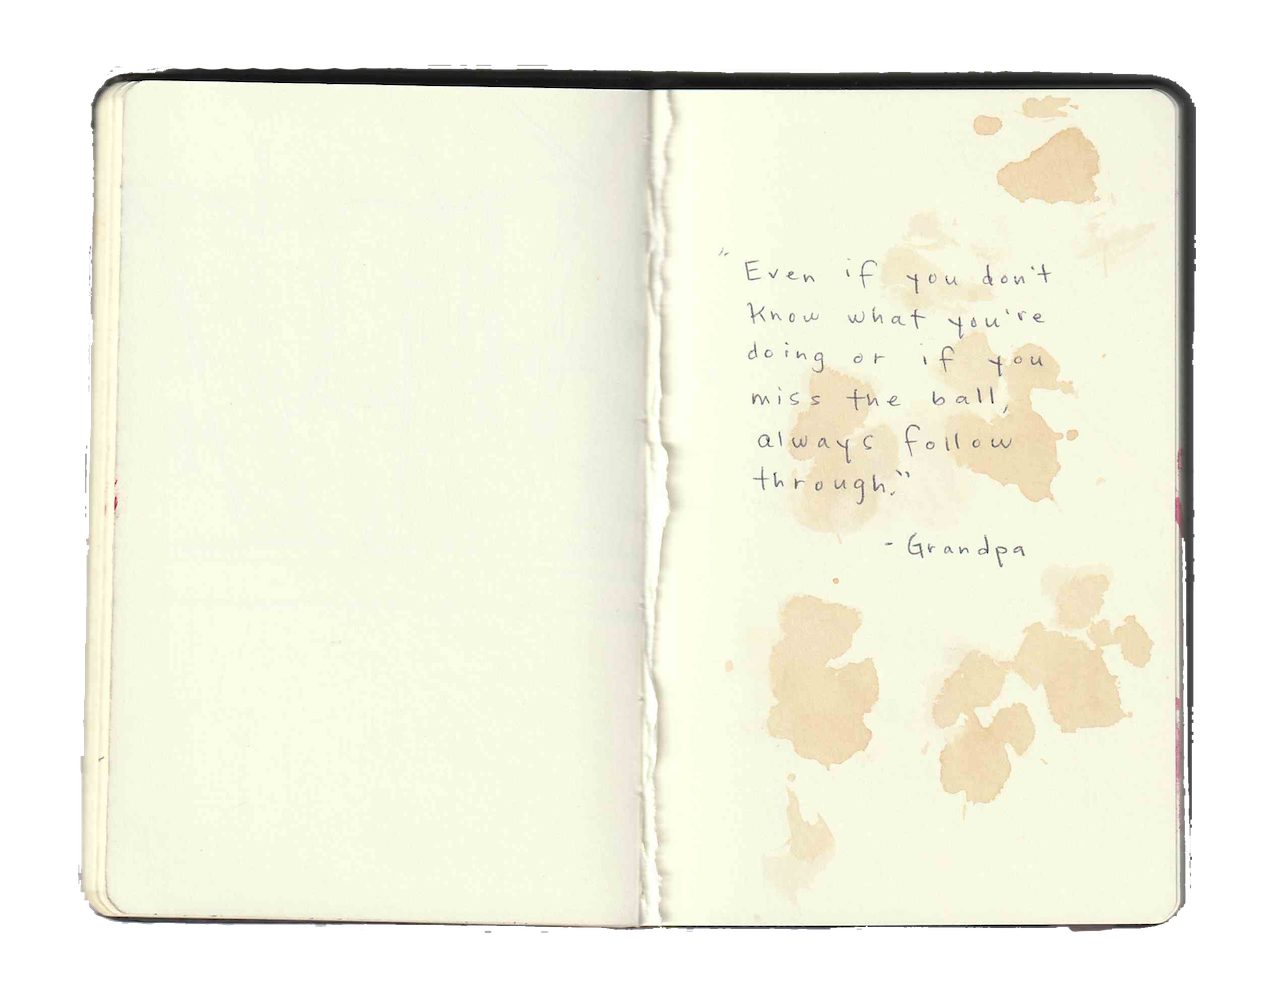 "Even if you don't
know what you're
doing or if you
miss the ball,
always follow
through."
- Grandpa